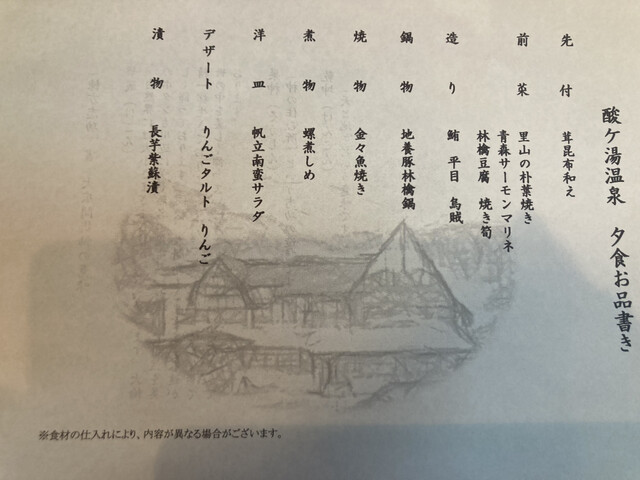 酸ケ湯温泉　夕食お品書き
先付　茸昆布和え
前菜　里山の朴葉焼き
青森サーモンマリネ
林檎豆腐　焼き筍
造り　鮪　平目　烏賊
鍋物　地養豚林檎鍋
焼物　金々魚焼き
煮物　螺煮しめ
洋皿　帆立南蛮サラダ
デザート　りんごタルト　りんご
漬物　長芋紫蘇漬
※食材の仕入れにより、内容が異なる場合がございます。